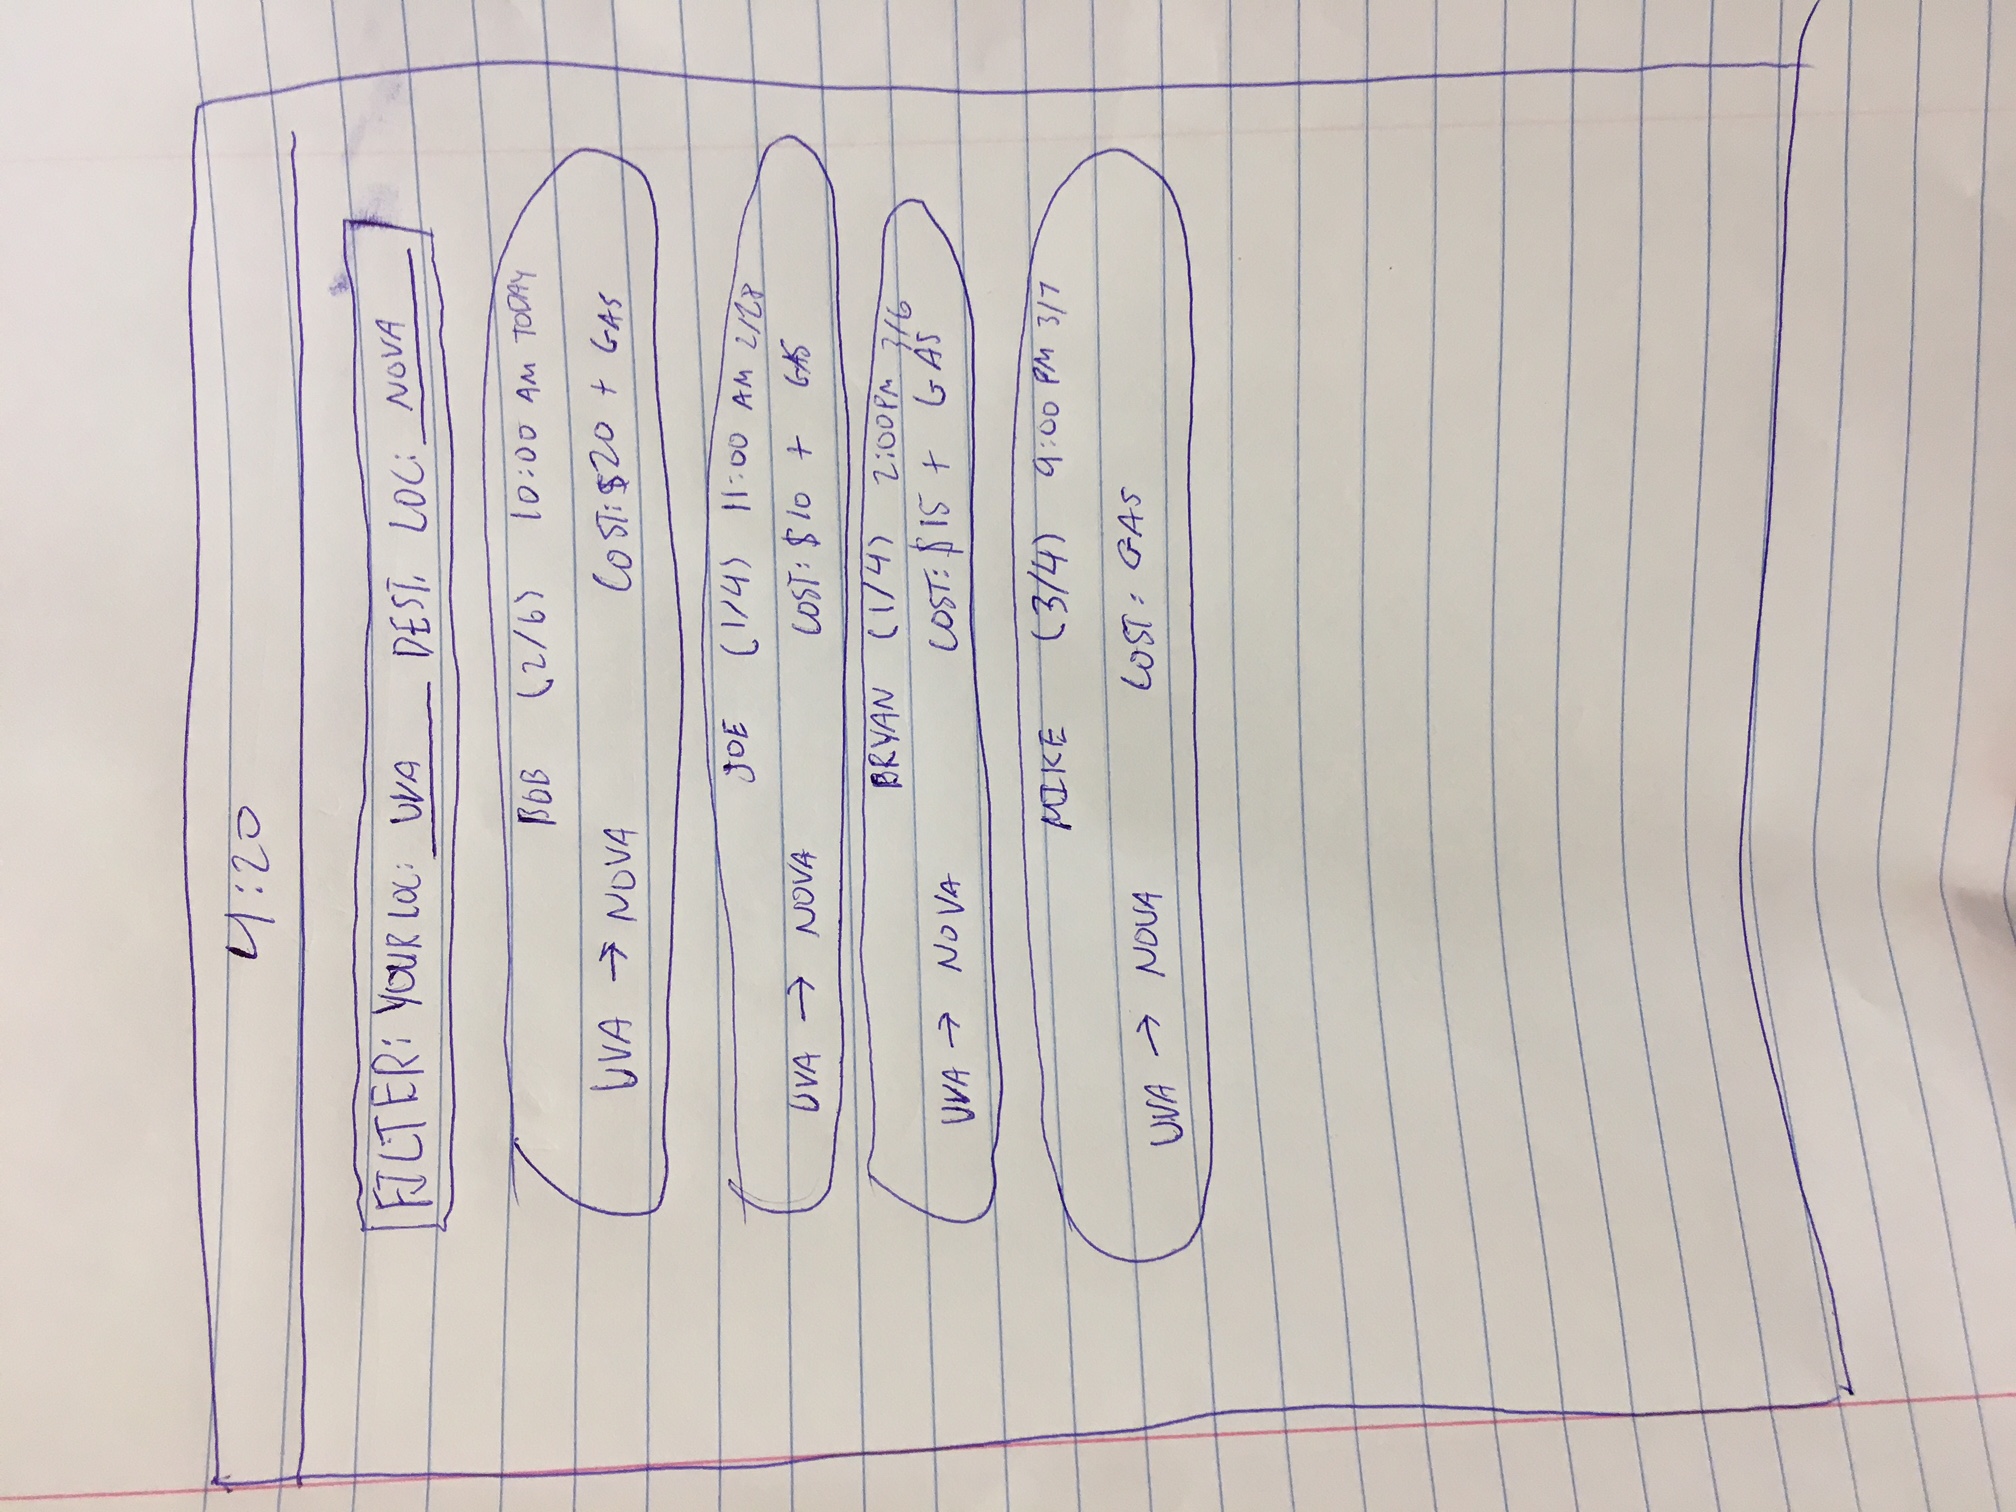 4:20
FILTER: YOUR LOC: UVA DEST. LOC: NOVA
BOB (2/6) 10:00 AM TODAY
UVA → NOVA COST: $20 + GAS
JOE (1/4) 11:00 AM 2/28
UVA → NOVA COST: $10 + GAS
BRYAN (1/4) 2:00PM 3/6
UVA → NOVA COST: $15 + GAS
MIKE (3/4) 9:00 PM 3/7
UVA → NOVA COST: GAS